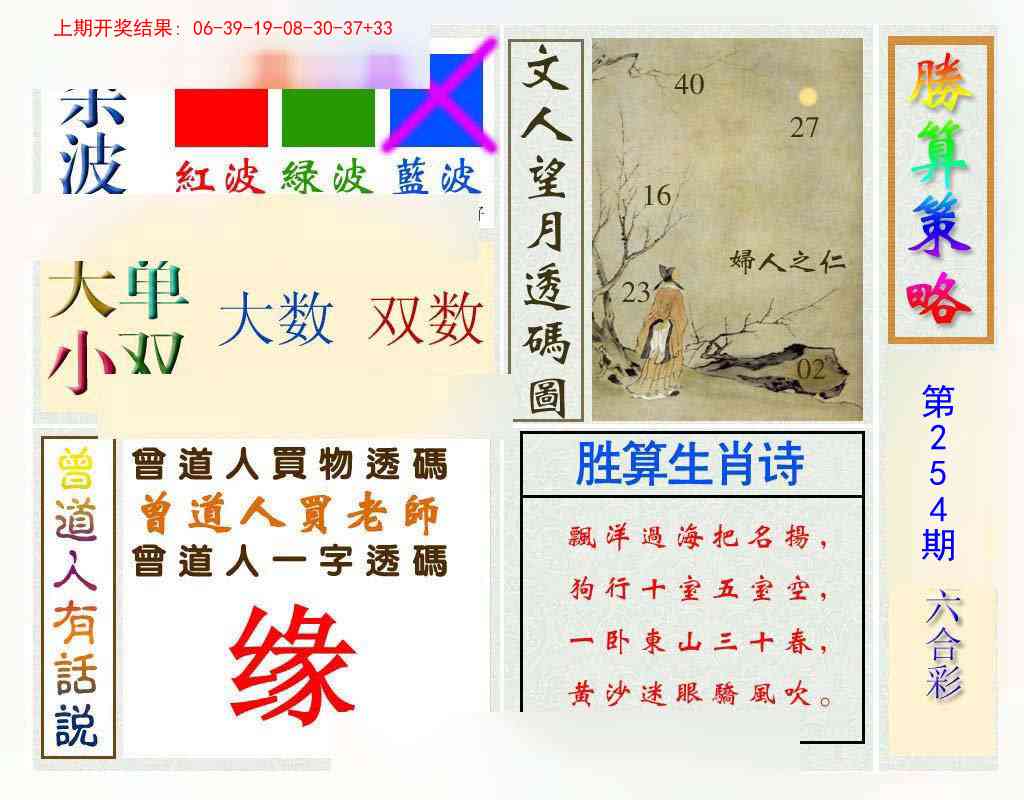 上期开奖结果: 06-39-19-08-30-37+33
波
紅波 绿波 藍波
大单
小双
大数 双数
文人望月透碼圖
40
27
16
婦人之仁
23
02
勝算策略
第254期
六合彩
曾道人有話説
曾道人買物透碼
曾道人買老師
曾道人一字透碼
缘
胜算生肖诗
飄洋過海把名揚，
狗行十室五室空，
一卧東山三十春，
黄沙迷眼驕風吹。